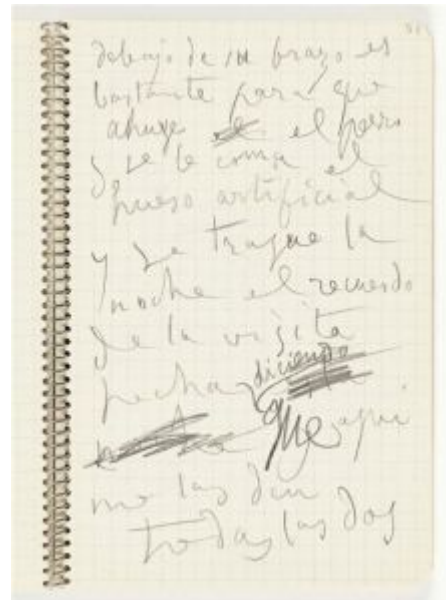 debajo de su brazo es
bastante para que
ahuye el perro
y se le coma el
hueso artificial
y se trague la
noche el recuerdo
de la visita
hecha diciendo
que aqui
me las den
todas las dos